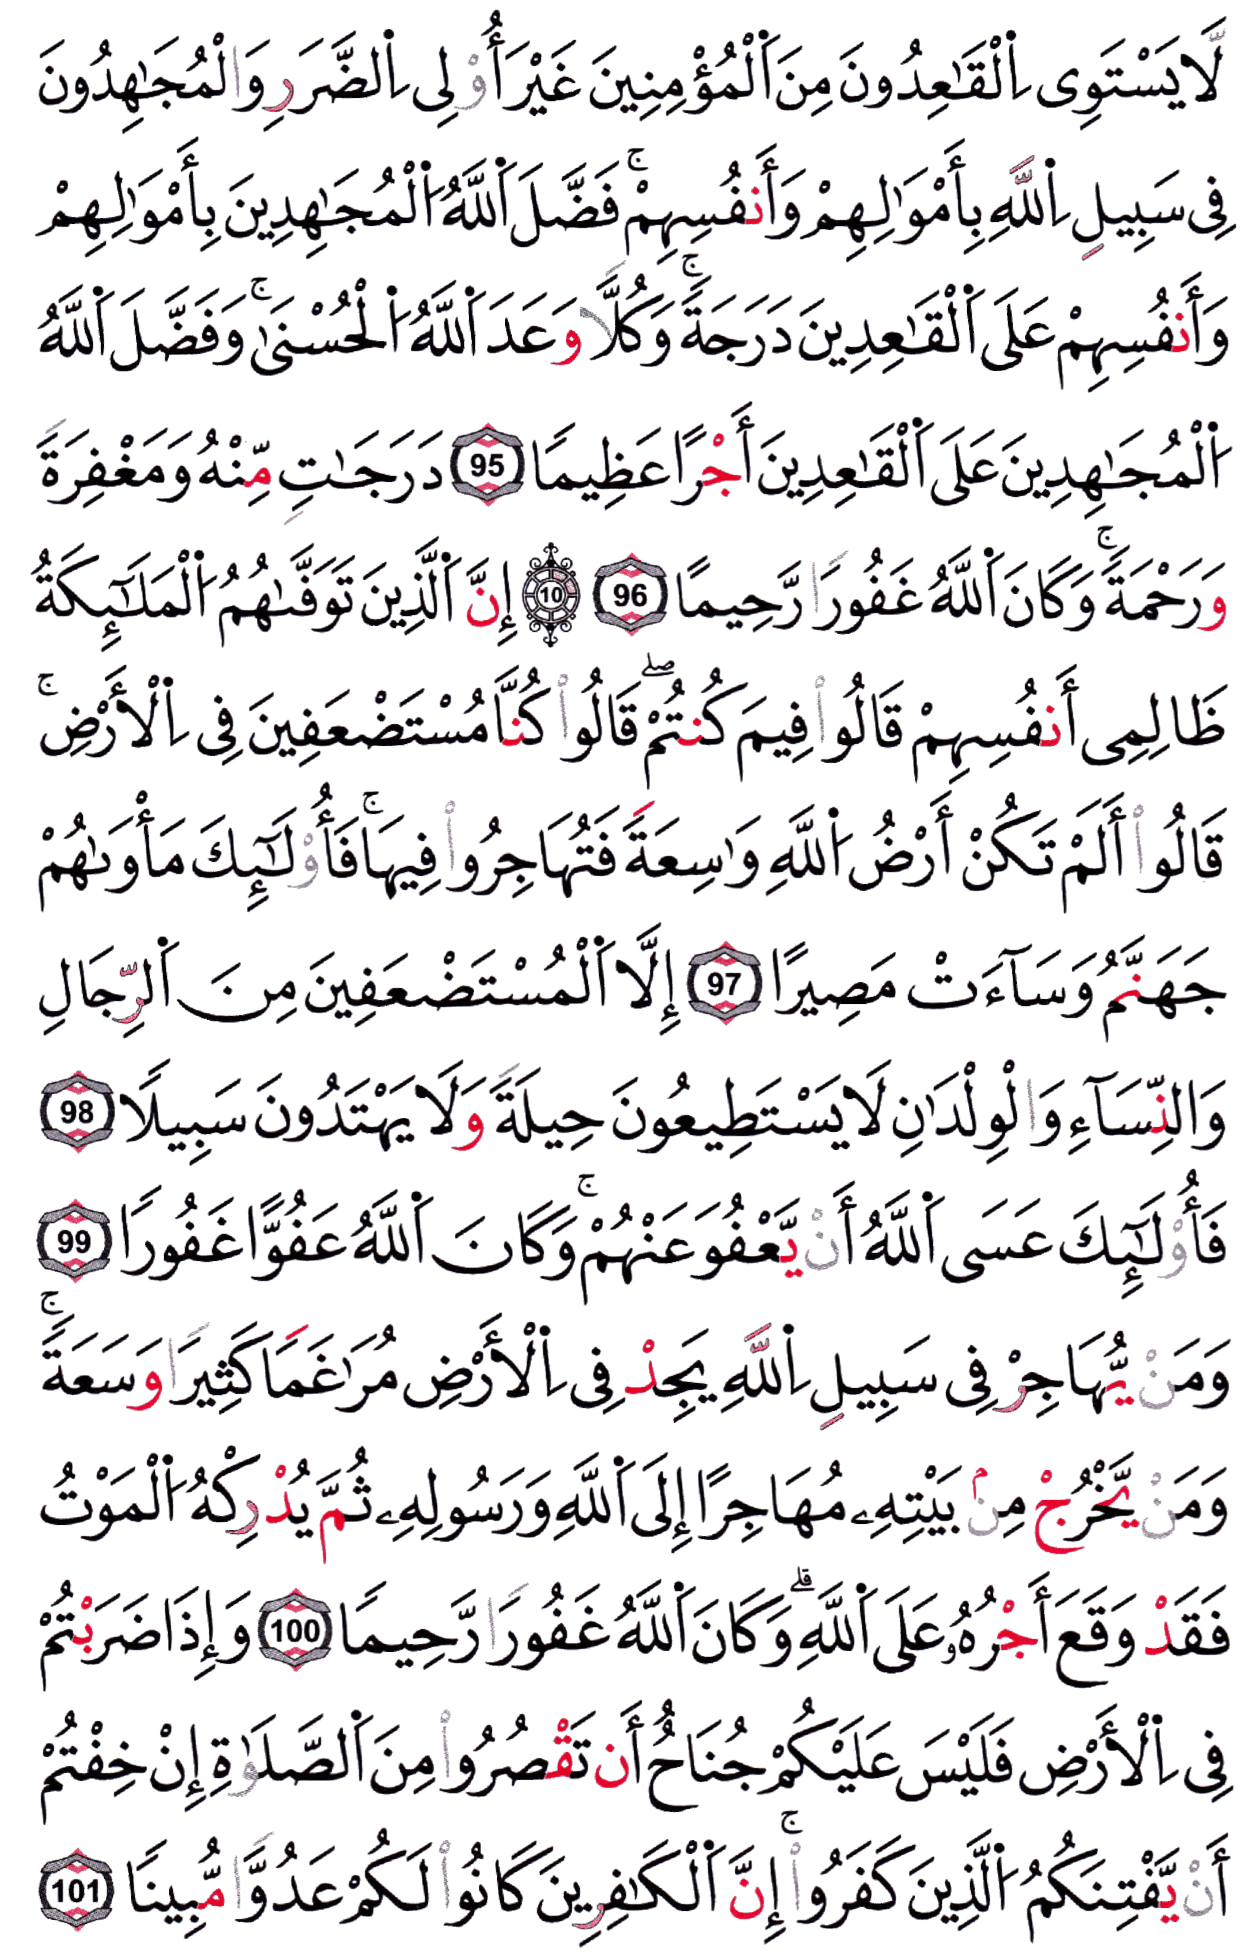 لَّا يَسْتَوِى اِ۬لْقَٰعِدُونَ مِنَ اَ۬لْمُؤْمِنِينَ غَيْرَ أُوْلِى اِ۬لضَّرَرِ وَالْمُجَٰهِدُونَ
فِى سَبِيلِ اِ۬للَّهِ بِأَمْوَٰلِهِمْ وَأَنفُسِهِمْۚ فَضَّلَ اَ۬للَّهُ اُ۬لْمُجَٰهِدِينَ بِأَمْوَٰلِهِمْ
وَأَنفُسِهِمْ عَلَى اَ۬لْقَٰعِدِينَ دَرَجَةًۚ وَكُلًّا وَعَدَ اَ۬للَّهُ اُ۬لْحُسْنَىٰۚ وَفَضَّلَ اَ۬للَّهُ
اُ۬لْمُجَٰهِدِينَ عَلَى اَ۬لْقَٰعِدِينَ أَجْرًا عَظِيمًا 95 دَرَجَٰتٍ مِّنْهُ وَمَغْفِرَةً
وَرَحْمَةًۚ وَكَانَ اَ۬للَّهُ غَفُورًا رَّحِيمًا 96 10 إِنَّ اَ۬لَّذِينَ تَوَفَّىٰهُمُ اُ۬لْمَلَٰٓئِكَةُ
ظَالِمِى أَنفُسِهِمْ قَالُواْ فِيمَ كُنتُمْۖ قَالُواْ كُنَّا مُسْتَضْعَفِينَ فِى اِ۬لْأَرْضِۚ
قَالُواْ أَلَمْ تَكُنْ أَرْضُ اُ۬للَّهِ وَٰسِعَةً فَتُهَاجِرُواْ فِيهَاۚ فَأُوْلَٰٓئِكَ مَأْوَىٰهُمْ
جَهَنَّمُ وَسَآءَتْ مَصِيرًا 97 إِلَّا اَ۬لْمُسْتَضْعَفِينَ مِنَ اَ۬لرِّجَالِ
وَالنِّسَآءِ وَالْوِلْدَٰنِ لَا يَسْتَطِيعُونَ حِيلَةً وَلَا يَهْتَدُونَ سَبِيلًا 98
فَأُوْلَٰٓئِكَ عَسَى اَ۬للَّهُ أَنْ يَّعْفُوَ عَنْهُمْۚ وَكَانَ اَ۬للَّهُ عَفُوًّا غَفُورًا 99
وَمَنْ يُّهَاجِرْ فِى سَبِيلِ اِ۬للَّهِ يَجِدْ فِى اِ۬لْأَرْضِ مُرَٰغَمًا كَثِيرًا وَسَعَةًۚ
وَمَنْ يَّخْرُجْ مِنۢ بَيْتِهِۦ مُهَاجِرًا إِلَى اَ۬للَّهِ وَرَسُولِهِۦ ثُمَّ يُدْرِكْهُ اُ۬لْمَوْتُ
فَقَدْ وَقَعَ أَجْرُهُۥ عَلَى اَ۬للَّهِۗ وَكَانَ اَ۬للَّهُ غَفُورًا رَّحِيمًا 100 وَإِذَا ضَرَبْتُمْ
فِى اِ۬لْأَرْضِ فَلَيْسَ عَلَيْكُمْ جُنَاحٌ أَن تَقْصُرُواْ مِنَ اَ۬لصَّلَوٰةِ إِنْ خِفْتُمْ
أَنْ يَّفْتِنَكُمُ اُ۬لَّذِينَ كَفَرُواْۚ إِنَّ اَ۬لْكَٰفِرِينَ كَانُواْ لَكُمْ عَدُوًّا مُّبِينًا 101